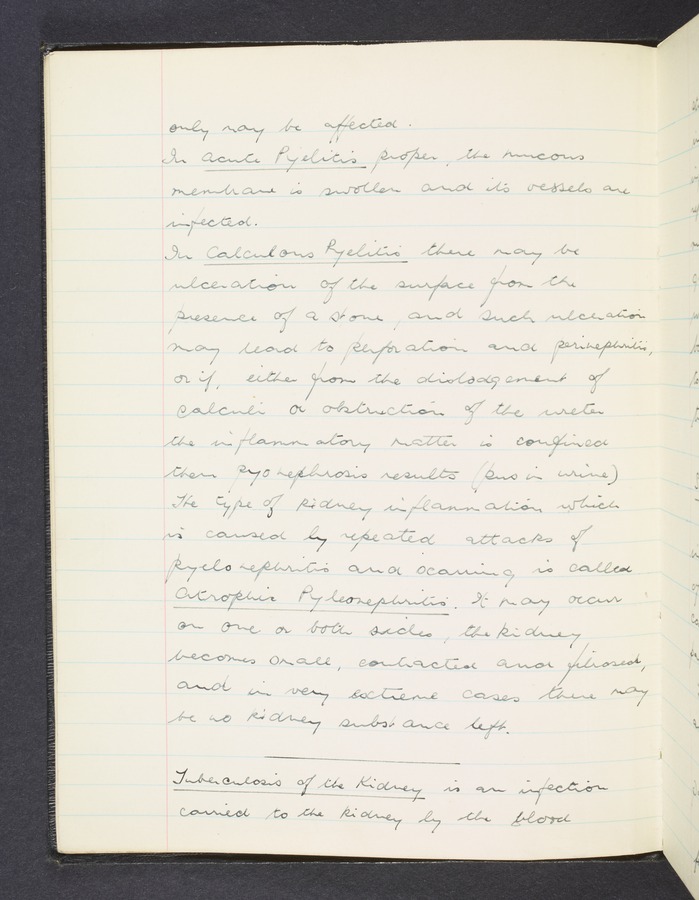 only may be affected.
In acute Pyelitis proper, the mucous
membrane is swollen and its vessels are
infected.
In Calculous Pyelitis there may be
ulceration of the surface from the
presence of a stone, and such ulceration
may lead to perforation and perinephritis,
or if, either from the dislodgement of
calculi or obstruction of the ureter
the inflammatory matter is confined
then pyonephrosis results (pus in urine)
The type of kidney inflammation which
is caused by repeated attacks of
pyelonephritis and is called
Atrophic Pyleonephritis. It may occur
on one or both sides, the kidney
becomes small, contracted and fibrosed,
and in very extreme cases there may
be no kidney substance left.
Tuberculosis of the Kidney is an infection
carried to the kidney by the blood